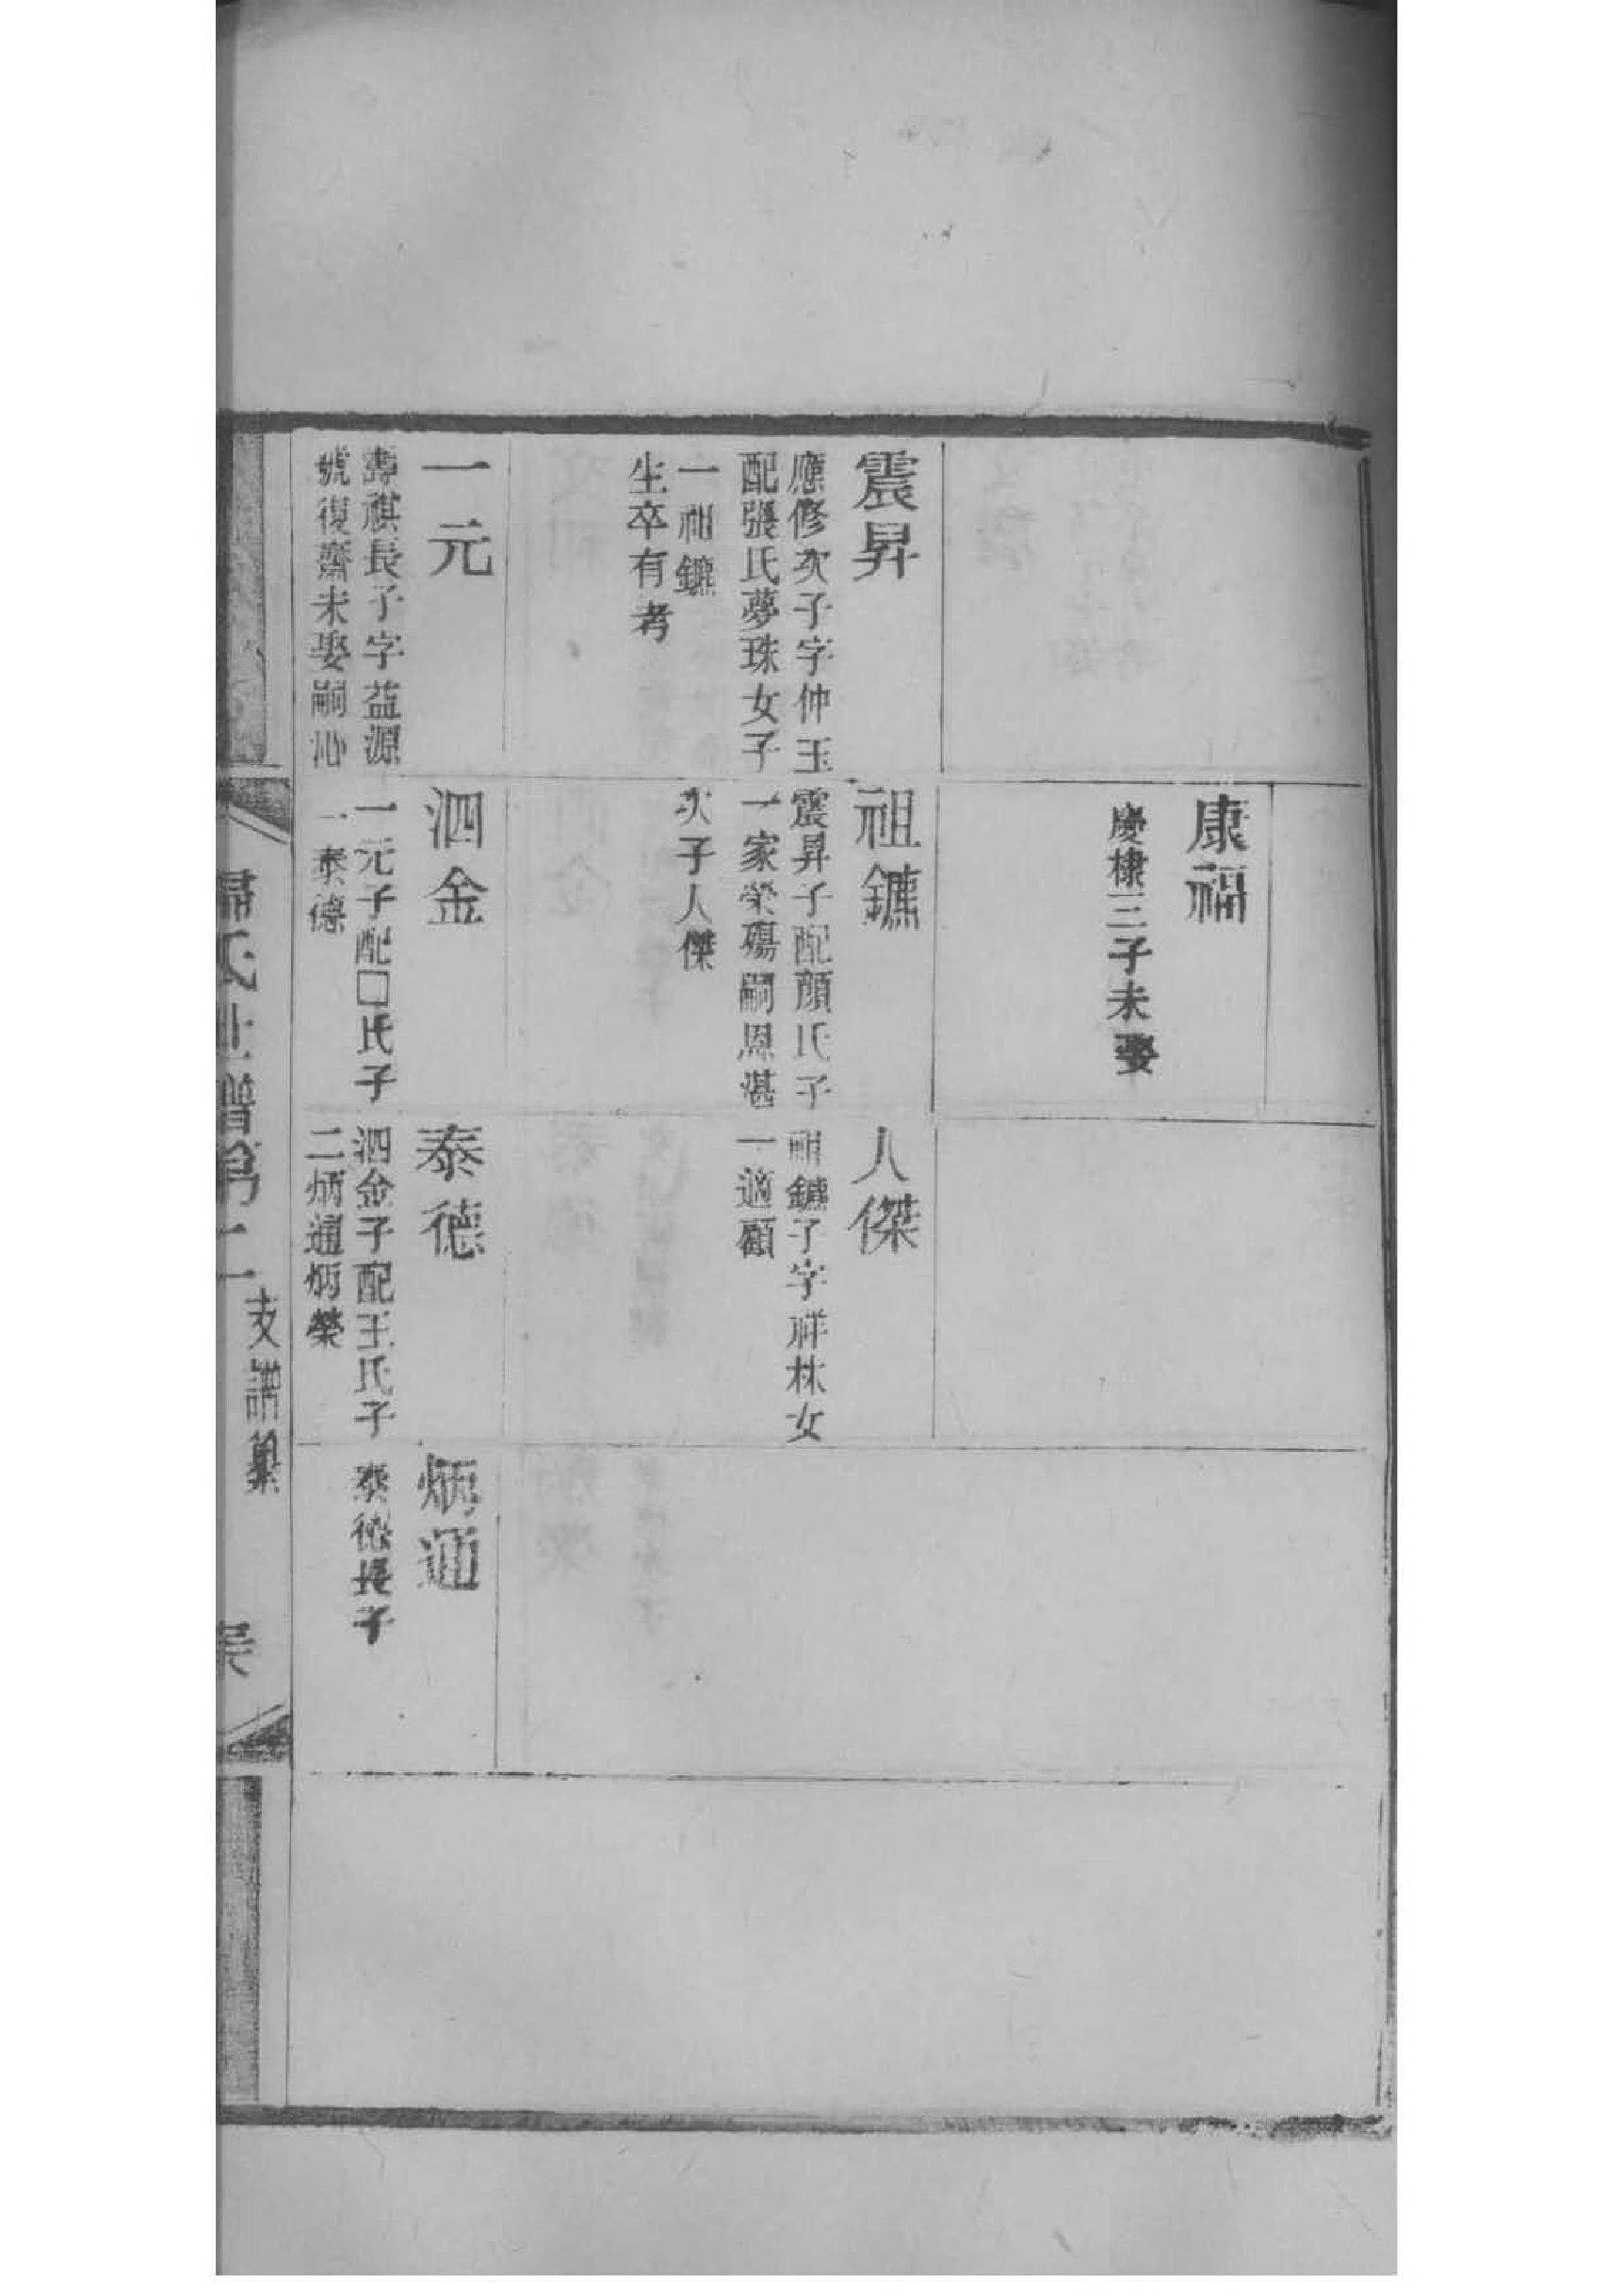 康福
慶棣三子未娶
震昇
應修次子字仲玉
配張氏夢珠女子
一祖鑣
生卒有考
祖鑣
震昇子配顏氏子
一家榮殤嗣恩湛
次子人傑
人傑
祖鑣子字祥林女
一適顧
一元
壽祺長子字益源
號復齋未娶嗣沁
泗金
一元子配□氏子
一泰德
泰德
泗金子配王氏子
二炳通炳榮
炳通
泰德長子
歸氏世譜第十一
支譜彙